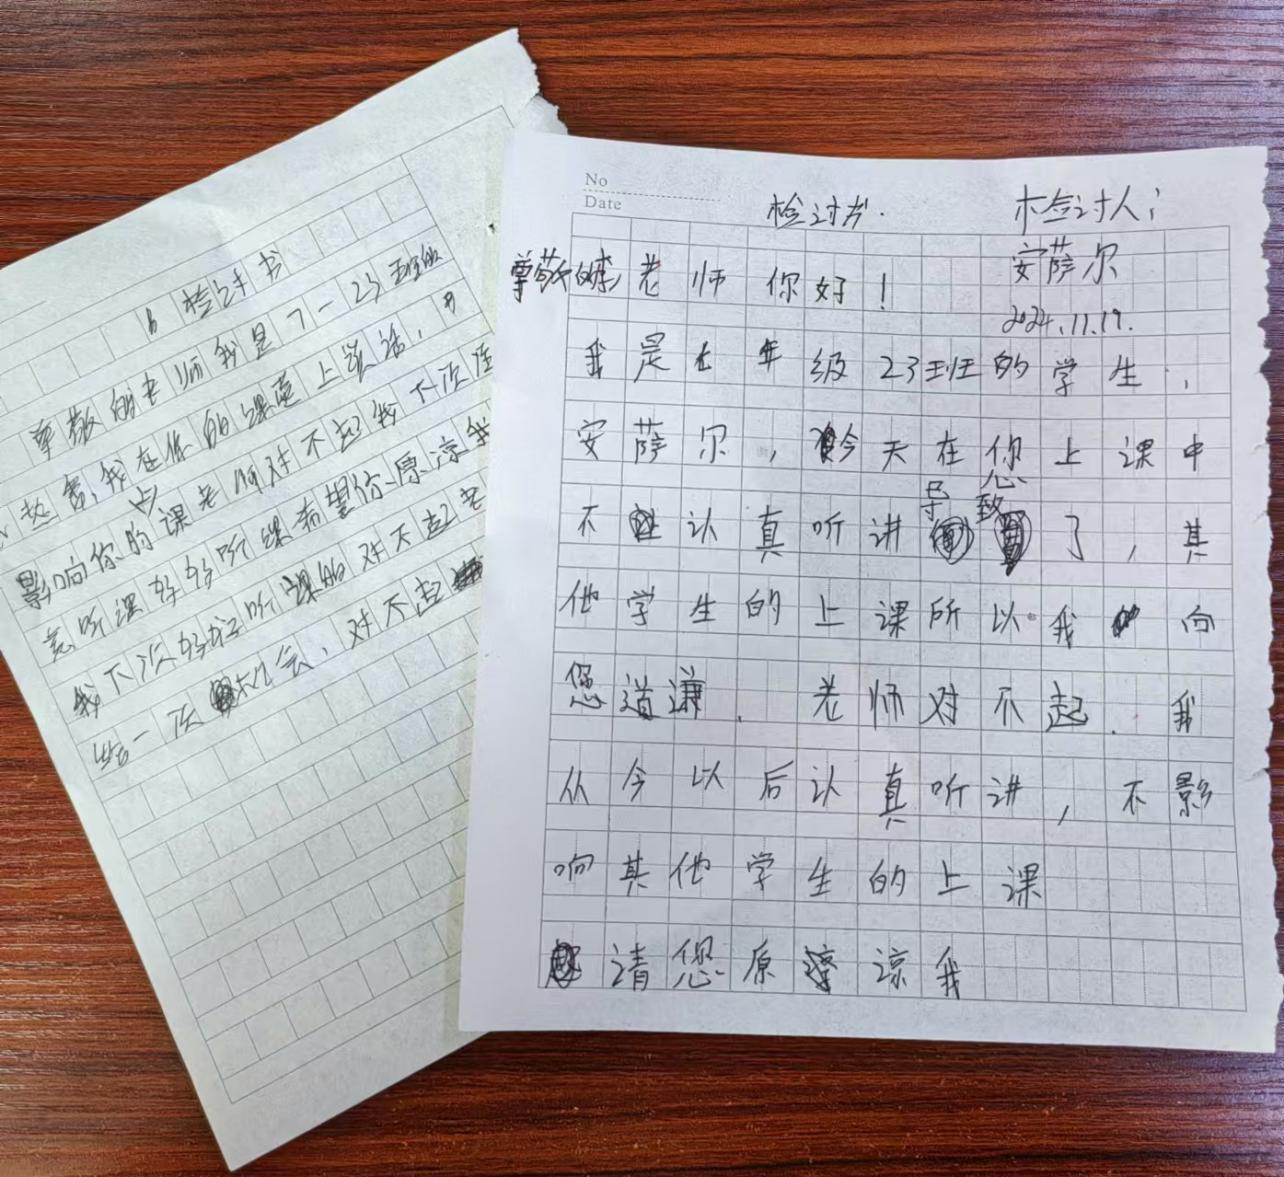 检讨书
尊敬的老师我是7-23班的
热 我在你的课堂上说话,
影响你的课老师对不起我下次
意听课好好听课希望你原凉我
我下次好好听课的对不起老
给一次机会,对不起
No
Date
检讨书.
检讨人:
安萨尔
2024.11.19.
尊敬的李老师你好!
我是七年级23班的学生,
安萨尔,今天在您上课中
不认真听讲导致了,其
他学生的上课所以我向
您道谦.老师对不起.我
从今以后认真听讲,不影
响其他学生的上课
请您原谅我